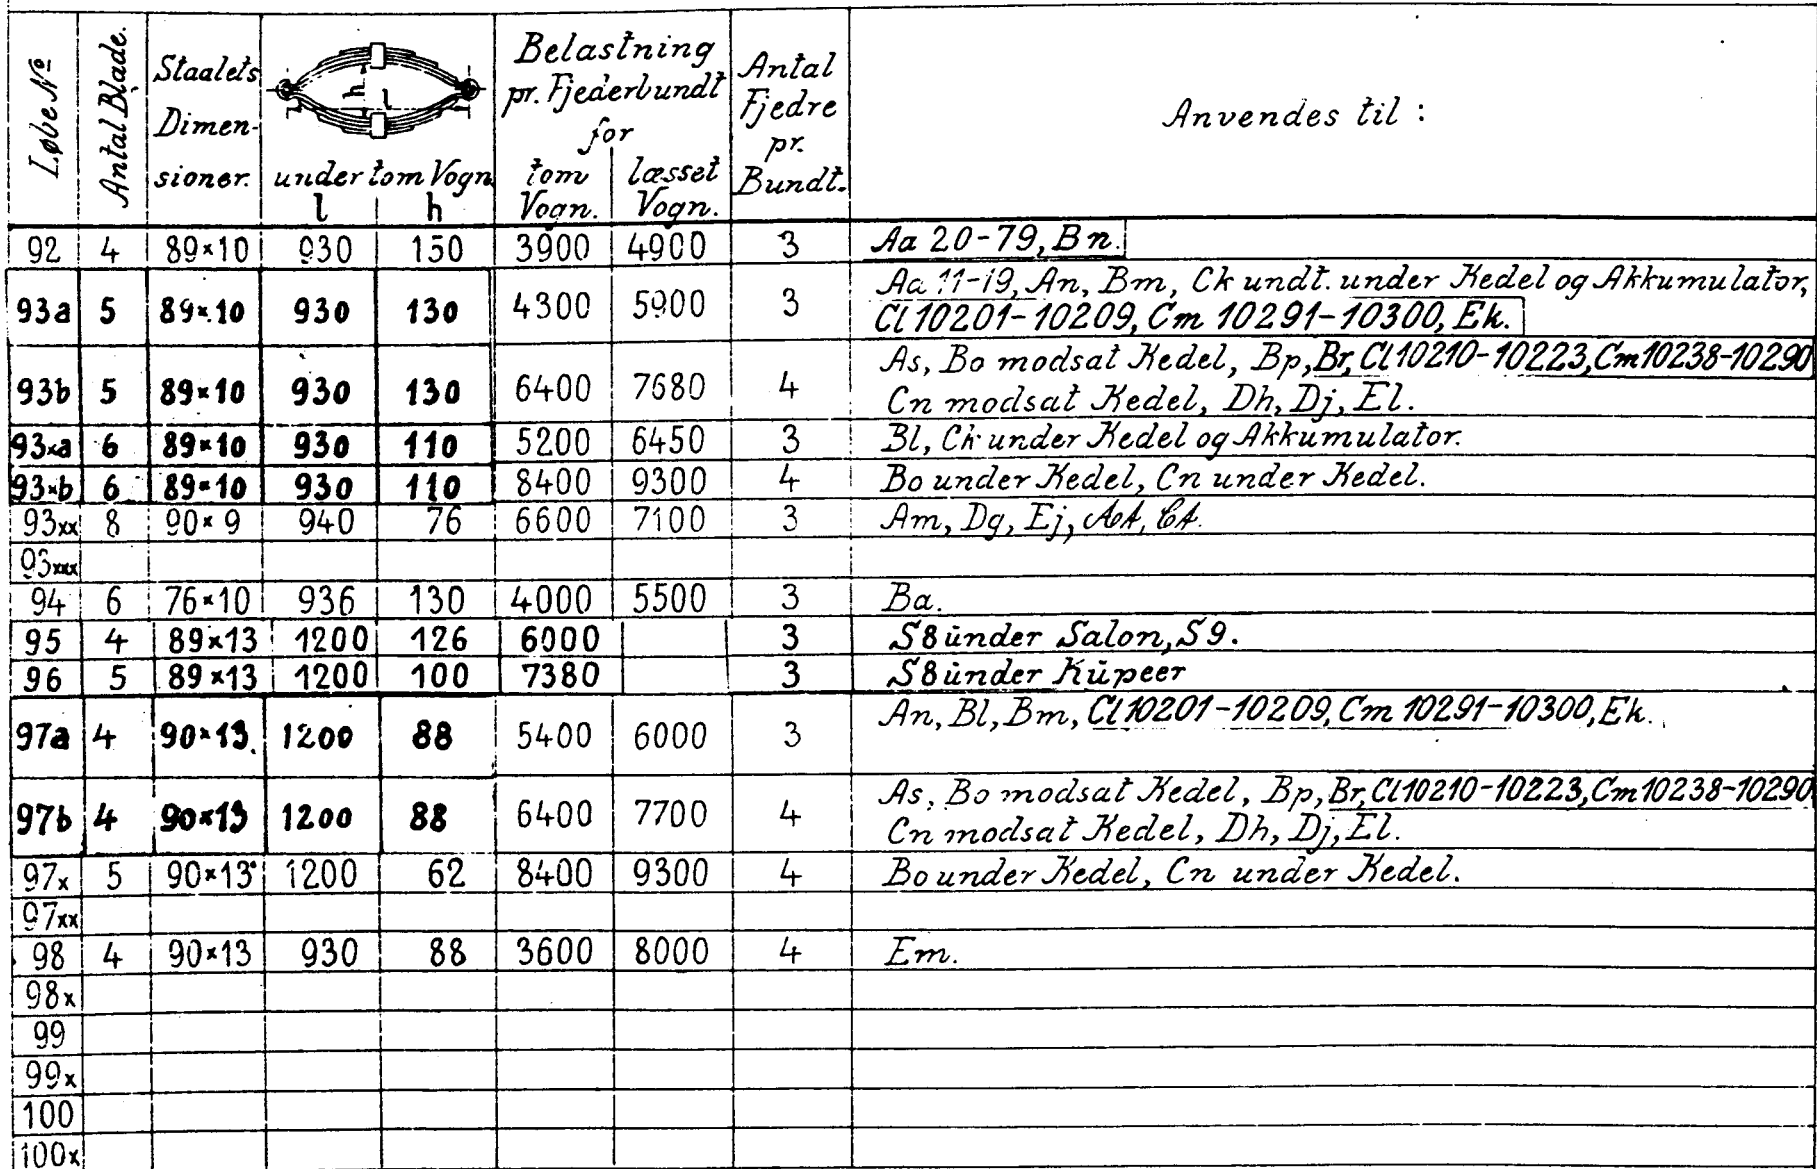 Løbe Nº | Antal Blade. | Staalets Dimen-sioner. | h l under tom Vogn l h | Belastning pr. Fjederbundt for tom Vogn. læsset Vogn. | Antal Fjedre pr. Bundt. | Anvendes til :
92 4 89×10 930 150 3900 4900 3 Aa 20-79, Bn.
93a 5 89×10 930 130 4300 5900 3 Aa 11-19, An, Bm, Ck undt. under Kedel og Akkumulator,
Cl 10201-10209, Cm 10291-10300, Ek.
93b 5 89×10 930 130 6400 7680 4 As, Bo modsat Kedel, Bp, Br, Cl 10210-10223, Cm 10238-10290
Cn modsat Kedel, Dh, Dj, El.
93xa 6 89×10 930 110 5200 6450 3 Bl, Ck under Kedel og Akkumulator.
93xb 6 89×10 930 110 8400 9300 4 Bo under Kedel, Cn under Kedel.
93xx 8 90×9 940 76 6600 7100 3 Am, Dg, Ej,
93xxx
94 6 76×10 936 130 4000 5500 3 Ba.
95 4 89×13 1200 126 6000 3 S8 under Salon, S9.
96 5 89×13 1200 100 7380 3 S8 under Kupeer
97a 4 90×13 1200 88 5400 6000 3 An, Bl, Bm, Cl 10201-10209, Cm 10291-10300, Ek.
97b 4 90×13 1200 88 6400 7700 4 As, Bo modsat Kedel, Bp, Br, Cl 10210-10223, Cm 10238-10290
Cn modsat Kedel, Dh, Dj, El.
97x 5 90×13 1200 62 8400 9300 4 Bo under Kedel, Cn under Kedel.
97xx
98 4 90×13 930 88 3600 8000 4 Em.
98x
99
99x
100
100x